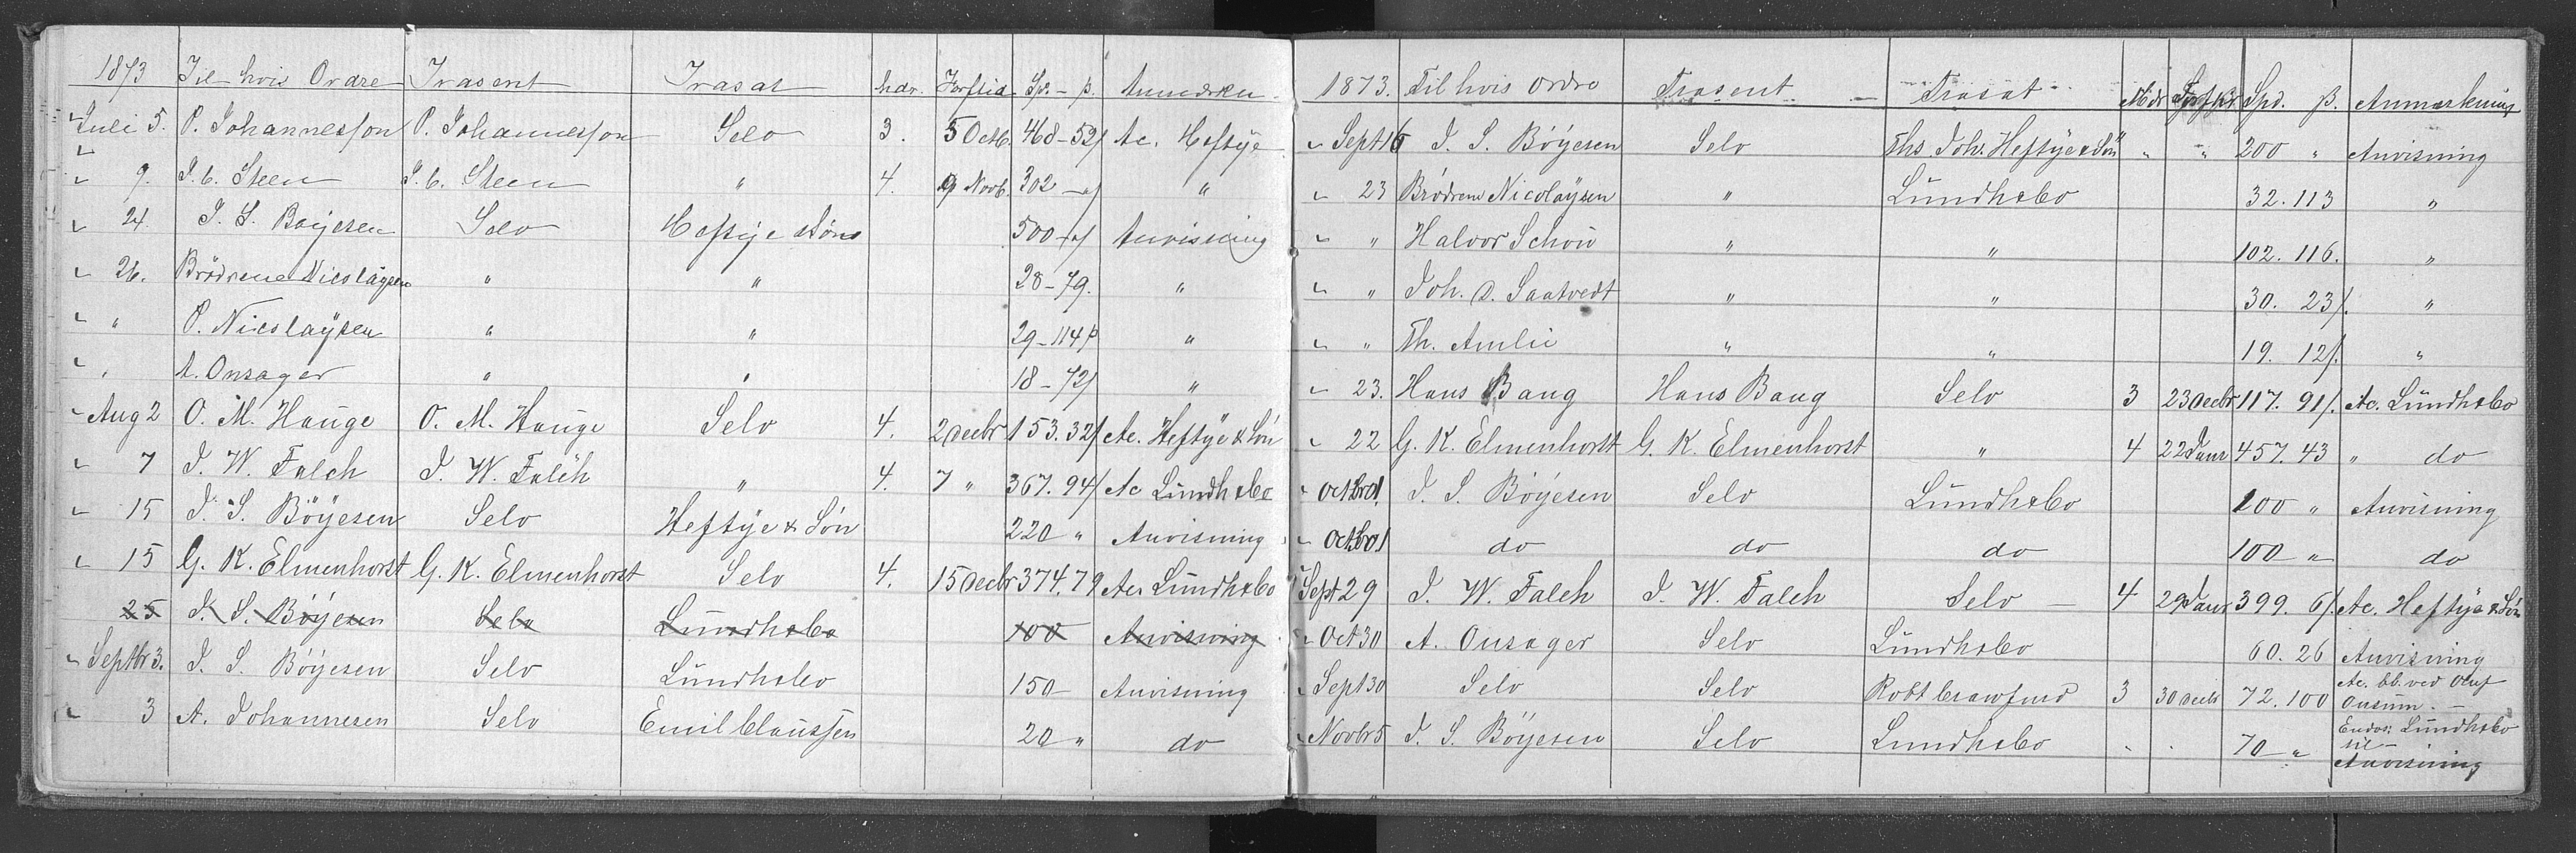 1873 Til hvis Ordre Trasent Trasat Mdr. Forftid Spd. – β. Anmærkn
Juli 5. P. Johannessen P. Johannessen Selv 3. 5 Octb. 468–52β Ac. Heftye
" 9. J. C. Steen J. C. Steen " 4. 9 Novb. 302 – " "
" 24 J. S. Bøyesen Selv Heftye & Søn 500 – " Anvisning
" 26. Brødrene Nicolaysen " " 28–79. "
" " P. Nicolaysen " " 29–114β "
" " A. Onsager " " 18–72β "
" Aug 2 O. M. Hauge O. M. Hauge Selv 4. 2 Decbr 153.32β Ac. Heftye & Søn
" 7 J. W. Falch J. W. Falch " 4. 7 " 367.94β Ac Lundh & Co
" 15 J. S. Bøyesen Selv Heftye & Søn 220 " Anvisning
" 15 G. K. Elmenhorst G. K. Elmenhorst Selv 4. 15 Decbr 374.79 Ac. Lundh & Co
25 J. S. Bøyesen Selv Lundh & Co 100 Anvisning
" Septbr 3. J. S. Bøyesen Selv Lundh & Co 150 – Anvisning
" 3 A. Johannesen Selv Emil Claussen 20 " do
1873. Til hvis Ordre Trasent Trasat Mdr Spd. β. Anmærkning
" Sept 16 J. S. Bøyesen Selv Ths. Joh. Heftye & Søn " " 200 " Anvisning
" 23 Brødrene Nicolaysen " Lundh & Co 32.113 "
" " Halvor Schou " " 102.116. "
" " Joh. D. Saatvedt " " 30.23β. "
" " Th. Amlie " " 19.12β. "
" 23. Hans Bang Hans Bang Selv 3 23 Decbr 117.91β. Ac. Lundh & Co
" 22 G. K. Elmenhorst G. K. Elmenhorst " 4 22 Janr 457.43 " do
" Octbr 1. J. S. Bøyesen Selv Lundh & Co 100 " Anvisning
" Octbr 1 do do do 100 " do
" Sept 29 J. W. Falch J. W. Falch Selv – 4 29 Janr 399.6β. Ac. Heftye & Søn
" Oct 30 A. Onsager Selv Lundh & Co 60.26 Anvisning
" Sept 30 Selv Selv Robt Crawfurd 3 30 Decb 72.100 Ac. bb. ved Oluf
Onsum. –
" Novbr 5 J. S. Bøyesen Selv Lundh & Co " " 70 – " Endos: Lundh & Co
til –
Anvisning